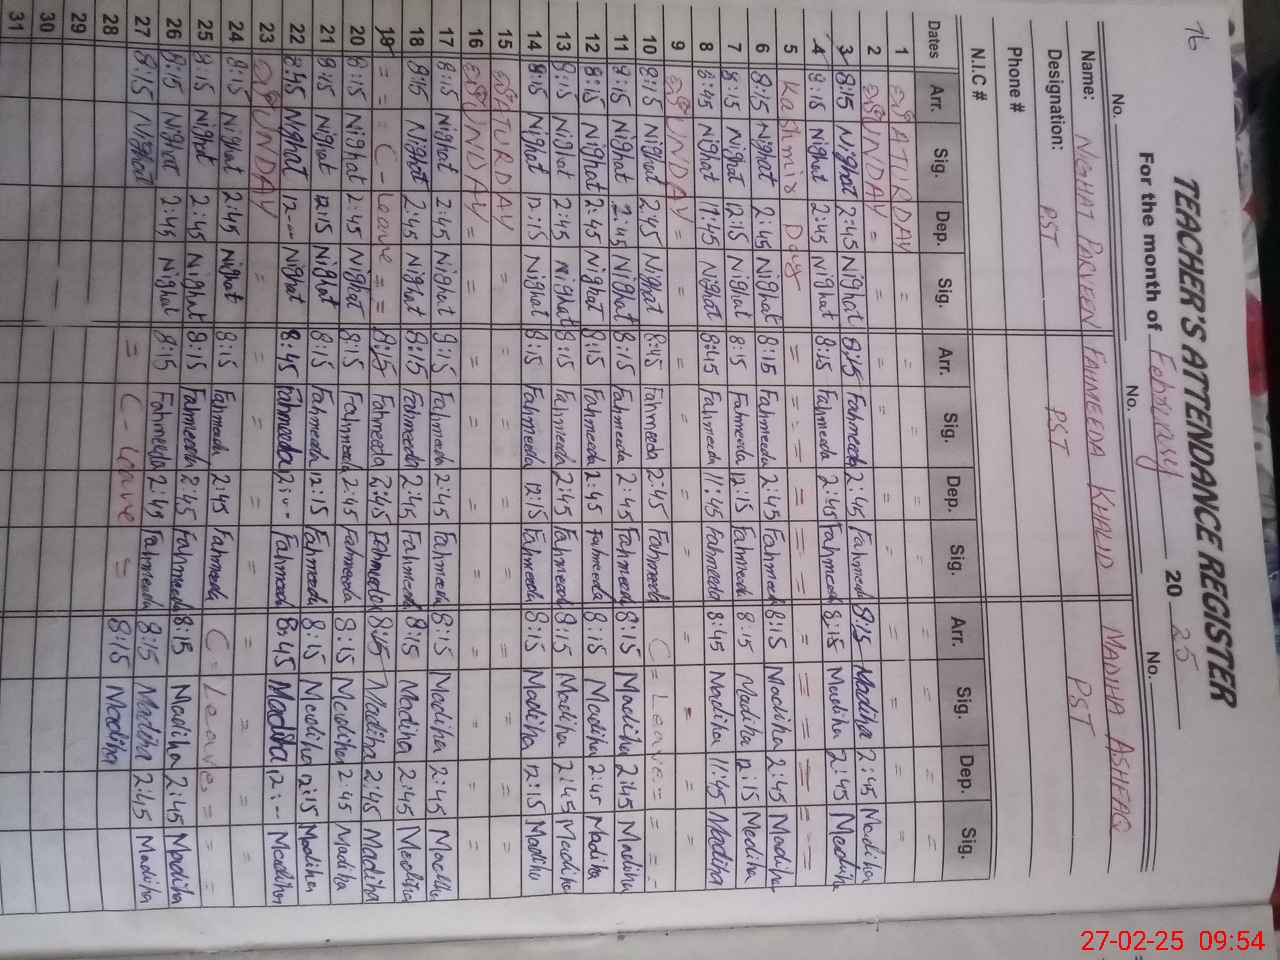 16
TEACHER'S ATTENDANCE REGISTER
For the month of February 20 25
No. No. No.
Name: NIGHAT PARVEEN FAHMEEDA KHALID MADIHA ASHFAQ
Designation: PST PST PST
Phone #
N.I.C #
Dates Arr. Sig. Dep. Sig. Arr. Sig. Dep. Sig. Arr. Sig. Dep. Sig.
1 SATURDAY = = = = = = = = =
2 SUNDAY = = = = = = = = = =
3 8:15 Nighat 2:45 Nighat 8:15 Fahmeeda 2:45 Fahmeeda 8:15 Madiha 2:45 Madiha
4 8:15 Nighat 2:45 Nighat 8:15 Fahmeeda 2:45 Fahmeeda 8:15 Madiha 2:45 Madiha
5 Kashmir Day = = = = = = = =
6 8:15 Nighat 2:45 Nighat 8:15 Fahmeeda 2:45 Fahmeeda 8:15 Madiha 2:45 Madiha
7 8:15 Nighat 12:15 Nighat 8:15 Fahmeeda 12:15 Fahmeeda 8:15 Madiha 12:15 Madiha
8 8:45 Nighat 11:45 Nighat 8:45 Fahmeeda 11:45 Fahmeeda 8:45 Madiha 11:45 Madiha
9 SUNDAY = = = = = = = = = =
10 8:15 Nighat 2:45 Nighat 8:45 Fahmeeda 2:45 Fahmeeda C = Leave = = =
11 8:15 Nighat 2:45 Nighat 8:15 Fahmeeda 2:45 Fahmeeda 8:15 Madiha 2:45 Madiha
12 8:15 Nighat 2:45 Nighat 8:15 Fahmeeda 2:45 Fahmeeda 8:15 Madiha 2:45 Madiha
13 8:15 Nighat 2:45 Nighat 8:15 Fahmeeda 2:45 Fahmeeda 8:15 Madiha 2:45 Madiha
14 8:15 Nighat 12:15 Nighat 8:15 Fahmeeda 12:15 Fahmeeda 8:15 Madiha 12:15 Madiha
15 SATURDAY = = = = = = = = =
16 SUNDAY = = = = = = = = = =
17 8:15 Nighat 2:45 Nighat 8:15 Fahmeeda 2:45 Fahmeeda 8:15 Madiha 2:45 Madiha
18 8:15 Nighat 2:45 Nighat 8:15 Fahmeeda 2:45 Fahmeeda 8:15 Madiha 2:45 Madiha
19 = = C - Leave = = 8:15 Fahmeeda 2:45 Fahmeeda 8:15 Madiha 2:45 Madiha
20 8:15 Nighat 2:45 Nighat 8:15 Fahmeeda 2:45 Fahmeeda 8:15 Madiha 2:45 Madiha
21 8:15 Nighat 12:15 Nighat 8:15 Fahmeeda 12:15 Fahmeeda 8:15 Madiha 12:15 Madiha
22 8:45 Nighat 12 -- Nighat 8:45 Fahmeeda Fahmeeda 8:45 Madiha 12:-- Madiha
23 SUNDAY = = = = = = = = =
24 8:15 Nighat 2:45 Nighat 8:15 Fahmeeda 2:45 Fahmeeda C = Leave = = =
25 8:15 Nighat 2:45 Nighat 8:15 Fahmeeda 2:45 Fahmeeda 8:15 Madiha 2:45 Madiha
26 8:15 Nighat 2:45 Nighat 8:15 Fahmeeda 2:45 Fahmeeda 8:15 Madiha 2:45 Madiha
27 8:15 Nighat = C - Leave = 8:15 Madiha
28
29
30
31
27-02-25 09:54